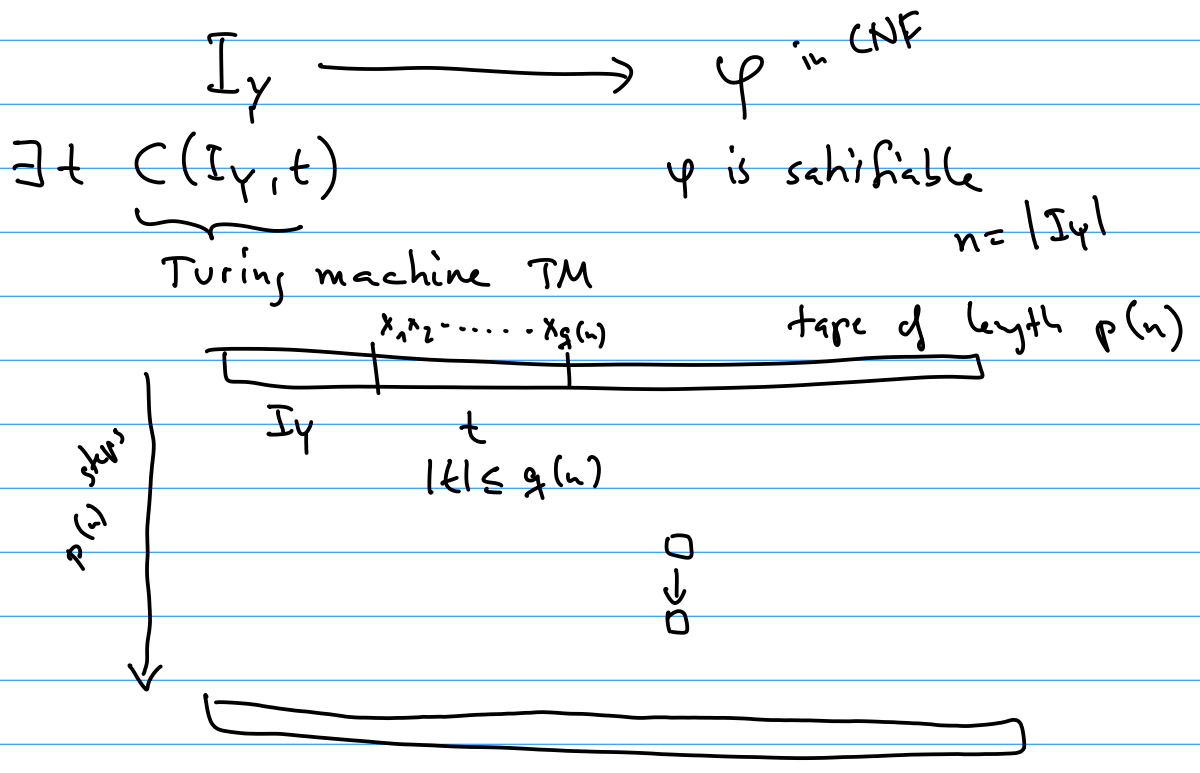 I_Y → φ in CNF
∃t C(I_Y, t) φ is satisfiable
n = |I_Y|
Turing machine TM
x₁ x₂ ...... x_q(n) tape of length p(n)
I_Y t
|t| ≤ q(n)
p(n) steps